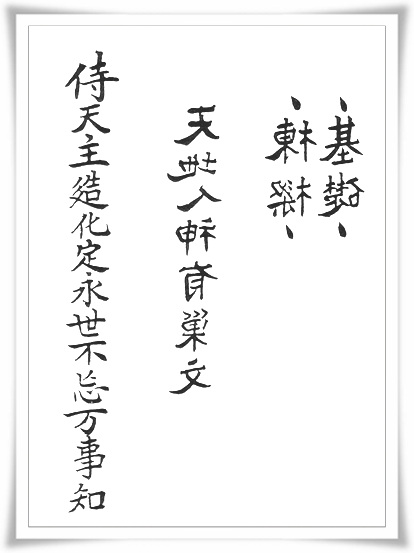 基礎
棟樑
天地人神有巢文
侍天主造化定永世不忘万事知